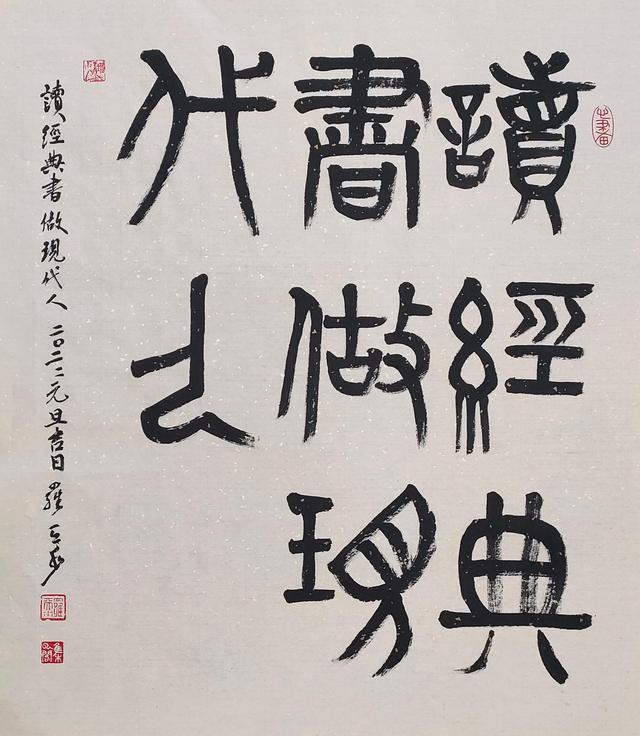 讀經典
書做現
代人
讀經典書做現代人 二〇二二元旦吉日 羅